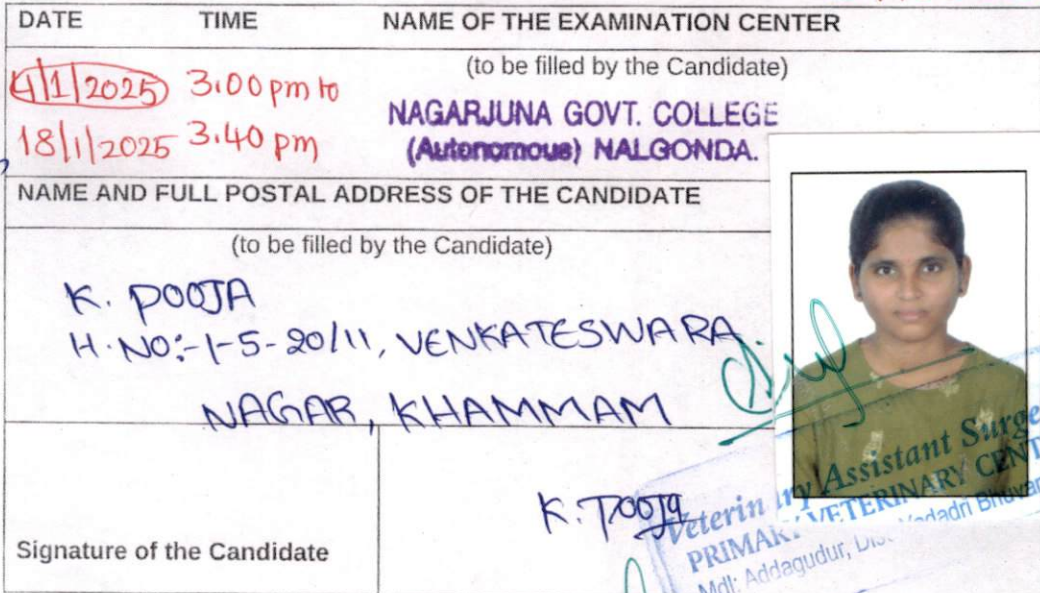 DATE TIME NAME OF THE EXAMINATION CENTER
(to be filled by the Candidate)
4/1/2025 3.00 pm to
18/1/2025 3.40 pm
NAGARJUNA GOVT. COLLEGE
(Autonomous) NALGONDA.
NAME AND FULL POSTAL ADDRESS OF THE CANDIDATE
(to be filled by the Candidate)
K. POOJA
H.NO:-1-5-20/11, VENKATESWARA
NAGAR, KHAMMAM
Signature of the Candidate
K. Pooja
Veterinary Assistant Surge
PRIMARY VETERINARY CENT
Mdl: Addagudur, Dist Yadadri Bhuvan